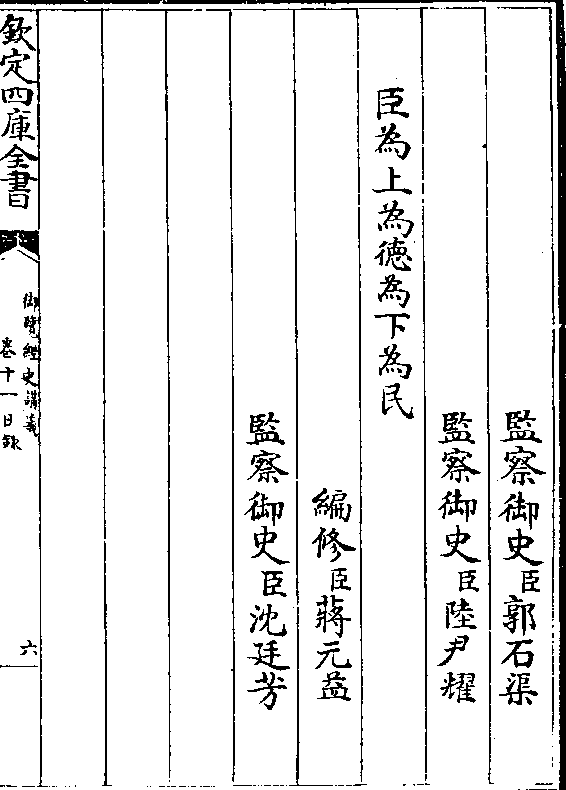 監察御史臣郭石渠
監察御史臣陸尹耀
臣為上為德為下為民
編修臣蔣元益
監察御史臣沈廷芳
欽定四庫全書
御覽經史講義
卷十一目録
六